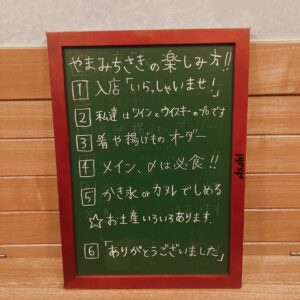 やまみちさきの楽しみ方!!
1 入店「いらっしゃいませ!」
2 私達はワインとウイスキーのプロです
3 肴や揚げもの オーダー
4 メイン、〆は必食!!
5 かき氷 or カヌレでしめる
☆お土産いろいろあります。
6 「ありがとうございました」
Asahi